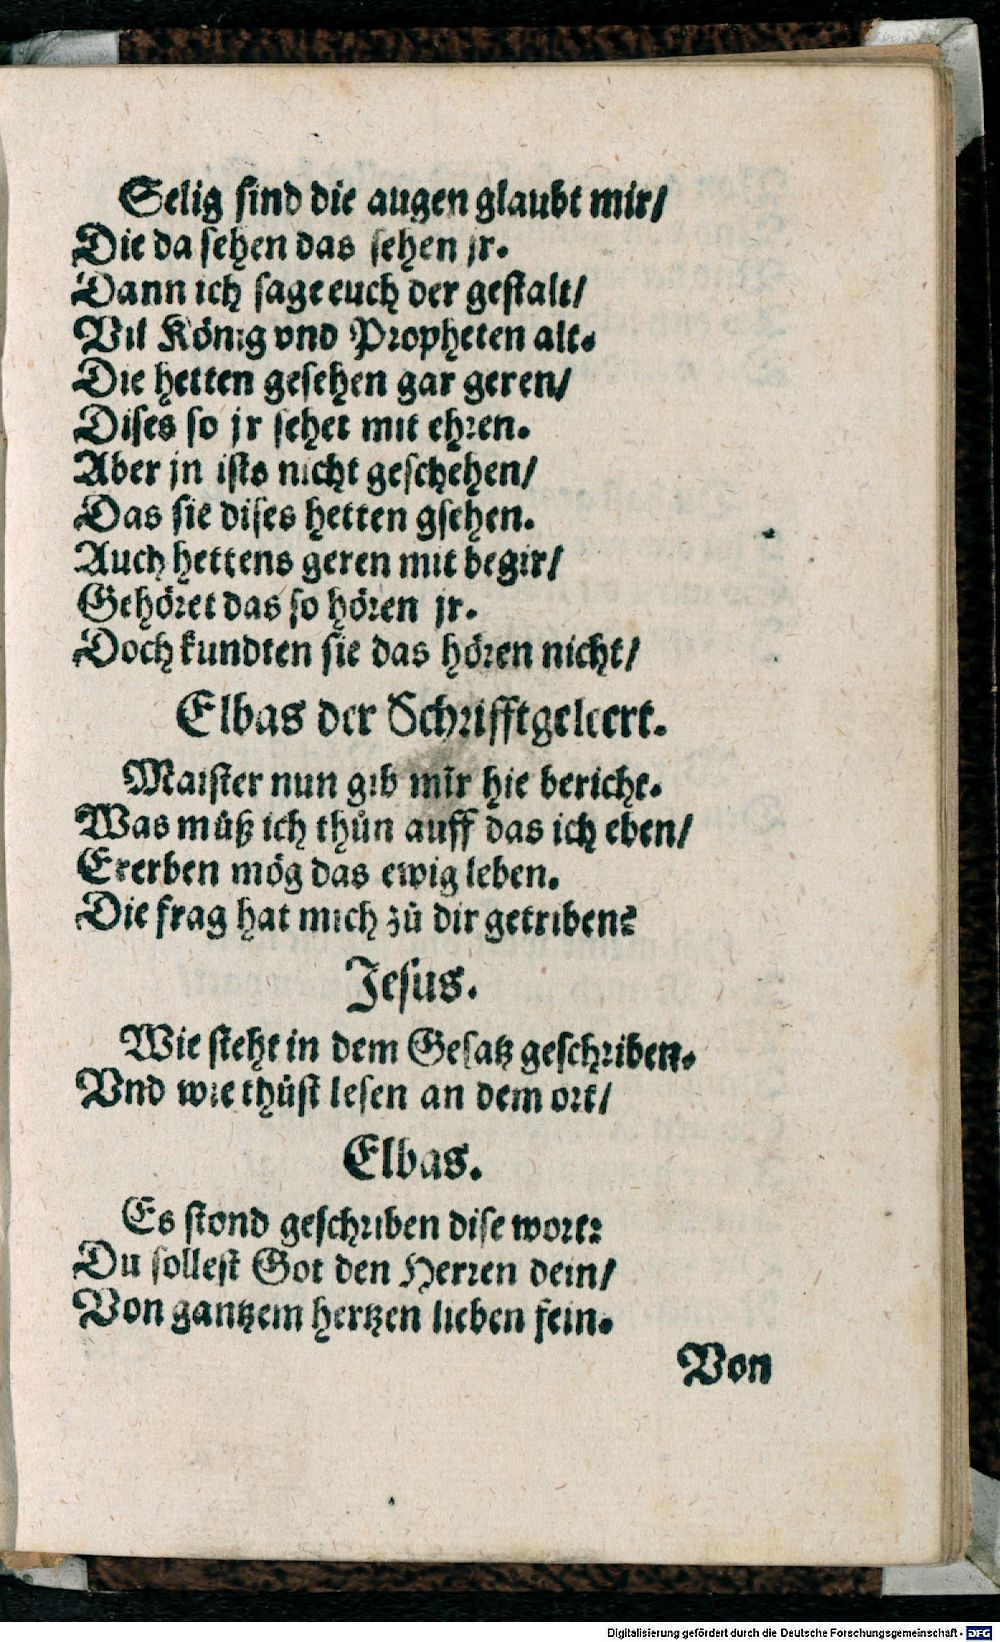 Selig sind die augen glaubt mir/
Die da sehen das sehen jr.
Dann ich sage euch der gestalt/
Vil König vnd Propheten alt.
Die hetten gesehen gar geren/
Dises so jr sehet mit ehren.
Aber jn ists nicht geschehen/
Das sie dises hetten gsehen.
Auch hettens geren mit begir/
Gehöret das so hören jr.
Doch kundten sie das hören nicht/
Elbas der Schrifftgeleert.
Maister nun gib mir hie bericht.
Was můß ich thůn auff das ich eben/
Ererben mög das ewig leben.
Die frag hat mich zů dir getriben?
Jesus.
Wie steht in dem Gesatz geschriben.
Vnd wie thůst lesen an dem ort/
Elbas.
Es stond geschriben dise wort:
Du sollest Got den Herren dein/
Von gantzem hertzen lieben fein.
Von
Digitalisierung gefördert durch die Deutsche Forschungsgemeinschaft - DFG